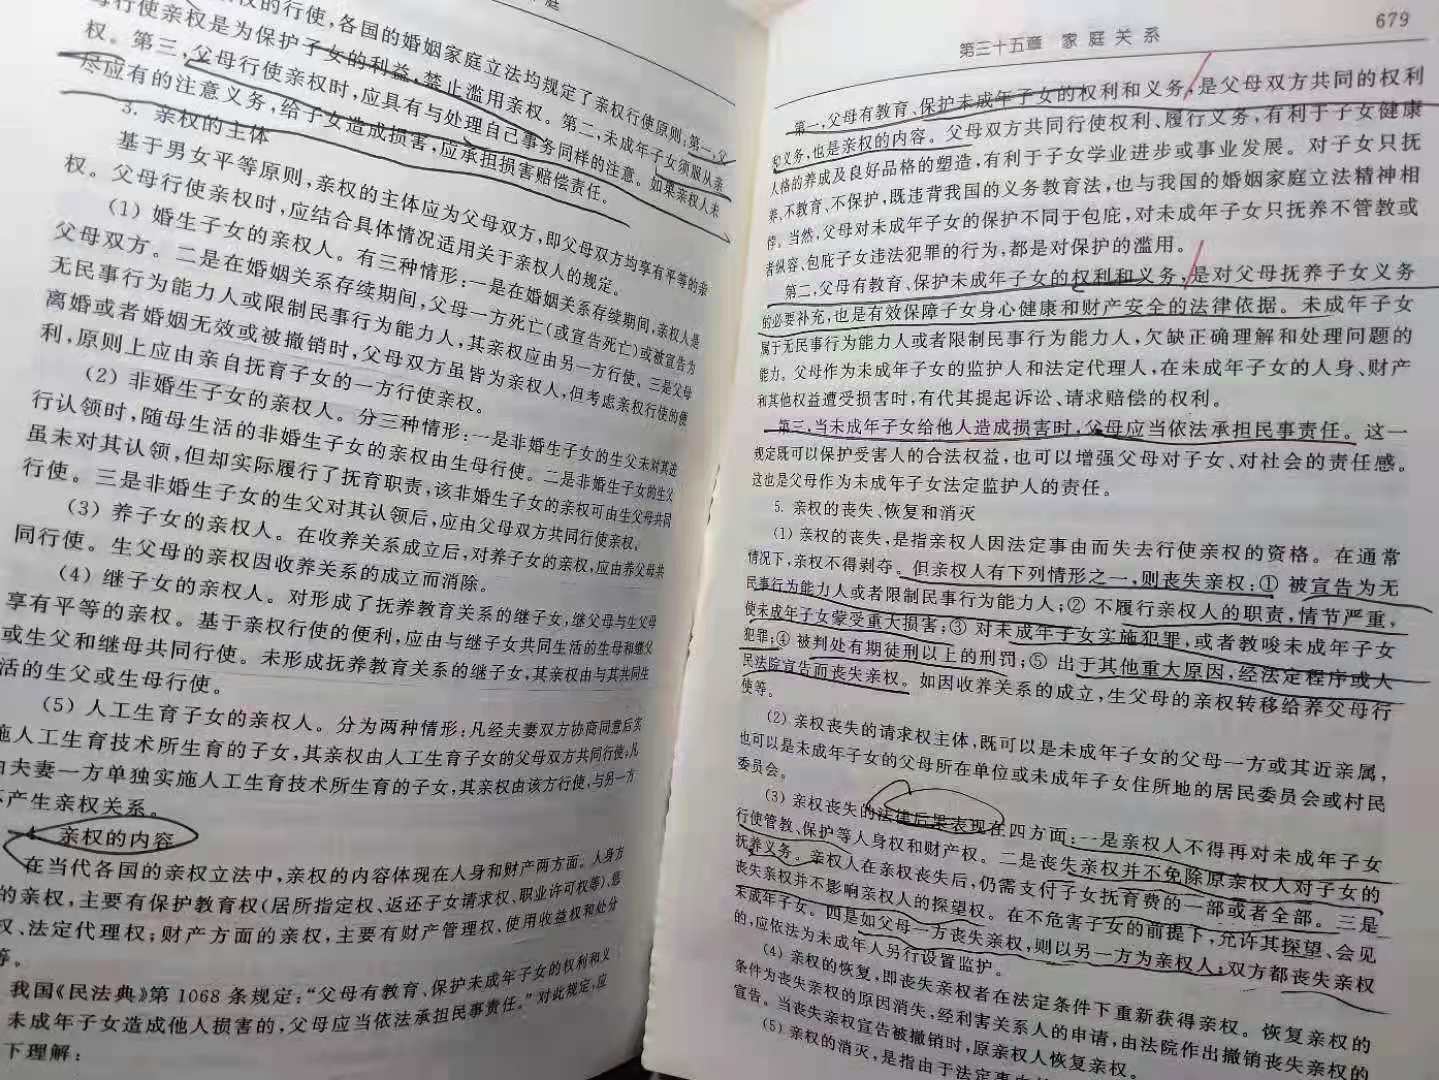 权的行使,各国的婚姻家庭立法均规定了亲权行使原则:第一,父
母行使亲权是为保护子女的利益,禁止滥用亲权。第二,未成年子女须服从亲
权。第三,父母行使亲权时,应具有与处理自己事务同样的注意。如果亲权人未
尽应有的注意义务,给子女造成损害,应承担损害赔偿责任。
3. 亲权的主体
基于男女平等原则,亲权的主体应为父母双方,即父母双方均享有平等的亲
权。父母行使亲权时,应结合具体情况适用关于亲权人的规定。
(1) 婚生子女的亲权人。有三种情形:一是在婚姻关系存续期间,亲权人是
父母双方。二是在婚姻关系存续期间,父母一方死亡(或宣告死亡)或被宣告为
无民事行为能力人或限制民事行为能力人,其亲权应由另一方行使。三是父母
离婚或者婚姻无效或被撤销时,父母双方虽皆为亲权人,但考虑亲权行使的便
利,原则上应由亲自抚育子女的一方行使亲权。
(2) 非婚生子女的亲权人。分三种情形:一是非婚生子女的生父未对其进
行认领时,随母生活的非婚生子女的亲权由生母行使。二是非婚生子女的生父
虽未对其认领,但却实际履行了抚育职责,该非婚生子女的亲权可由生父母共同
行使。三是非婚生子女的生父对其认领后,应由父母双方共同行使亲权。
(3) 养子女的亲权人。在收养关系成立后,对养子女的亲权,应由养父母共
同行使。生父母的亲权因收养关系的成立而消除。
(4) 继子女的亲权人。对形成了抚养教育关系的继子女,继父母与生父母
享有平等的亲权。基于亲权行使的便利,应由与继子女共同生活的生母和继父
或生父和继母共同行使。未形成抚养教育关系的继子女,其亲权由与其共同生
活的生父或生母行使。
(5) 人工生育子女的亲权人。分为两种情形:凡经夫妻双方协商同意后实
施人工生育技术所生育的子女,其亲权由人工生育子女的父母双方共同行使,凡
由夫妻一方单独实施人工生育技术所生育的子女,其亲权由该方行使,与另一方
不产生亲权关系。
4. 亲权的内容
在当代各国的亲权立法中,亲权的内容体现在人身和财产两方面。人身方
的亲权,主要有保护教育权(居所指定权、返还子女请求权、职业许可权等)、惩
权、法定代理权;财产方面的亲权,主要有财产管理权、使用收益权和处分
等。
我国《民法典》第 1068 条规定:“父母有教育、保护未成年子女的权利和义
未成年子女造成他人损害的,父母应当依法承担民事责任。”对此规定,应
下理解:
第三十五章 家庭关系 679
第一,父母有教育、保护未成年子女的权利和义务,是父母双方共同的权利
和义务,也是亲权的内容。父母双方共同行使权利、履行义务,有利于子女健康
人格的养成及良好品格的塑造,有利于子女学业进步或事业发展。对子女只抚
养,不教育、不保护,既违背我国的义务教育法,也与我国的婚姻家庭立法精神相
悖。当然,父母对未成年子女的保护不同于包庇,对未成年子女只抚养不管教或
者纵容、包庇子女违法犯罪的行为,都是对保护的滥用。
第二,父母有教育、保护未成年子女的权利和义务,是对父母抚养子女义务
的必要补充,也是有效保障子女身心健康和财产安全的法律依据。未成年子女
属于无民事行为能力人或者限制民事行为能力人,欠缺正确理解和处理问题的
能力。父母作为未成年子女的监护人和法定代理人,在未成年子女的人身、财产
和其他权益遭受损害时,有代其提起诉讼、请求赔偿的权利。
第三,当未成年子女给他人造成损害时,父母应当依法承担民事责任。这一
规定既可以保护受害人的合法权益,也可以增强父母对子女、对社会的责任感。
这也是父母作为未成年子女法定监护人的责任。
5. 亲权的丧失、恢复和消灭
(1) 亲权的丧失,是指亲权人因法定事由而失去行使亲权的资格。在通常
情况下,亲权不得剥夺。但亲权人有下列情形之一,则丧失亲权:① 被宣告为无
民事行为能力人或者限制民事行为能力人;② 不履行亲权人的职责,情节严重,
使未成年子女蒙受重大损害;③ 对未成年子女实施犯罪,或者教唆未成年子女
犯罪;④ 被判处有期徒刑以上的刑罚;⑤ 出于其他重大原因,经法定程序或人
民法院宣告而丧失亲权。如因收养关系的成立,生父母的亲权转移给养父母行
使等。
(2) 亲权丧失的请求权主体,既可以是未成年子女的父母一方或其近亲属,
也可以是未成年子女的父母所在单位或未成年子女住所地的居民委员会或村民
委员会。
(3) 亲权丧失的法律后果表现在四方面:一是亲权人不得再对未成年子女
行使管教、保护等人身权和财产权。二是丧失亲权并不免除原亲权人对子女的
抚养义务。亲权人在亲权丧失后,仍需支付子女抚育费的一部或者全部。三是
丧失亲权并不影响亲权人的探望权。在不危害子女的前提下,允许其探望、会见
未成年子女。四是如父母一方丧失亲权,则以另一方为亲权人;双方都丧失亲权
的,应依法为未成年人另行设置监护。
(4) 亲权的恢复,即丧失亲权者在法定条件下重新获得亲权。恢复亲权的
条件为丧失亲权的原因消失,经利害关系人的申请,由法院作出撤销丧失亲权的
宣告。当丧失亲权宣告被撤销时,原亲权人恢复亲权。
(5) 亲权的消灭,是指由于法定事